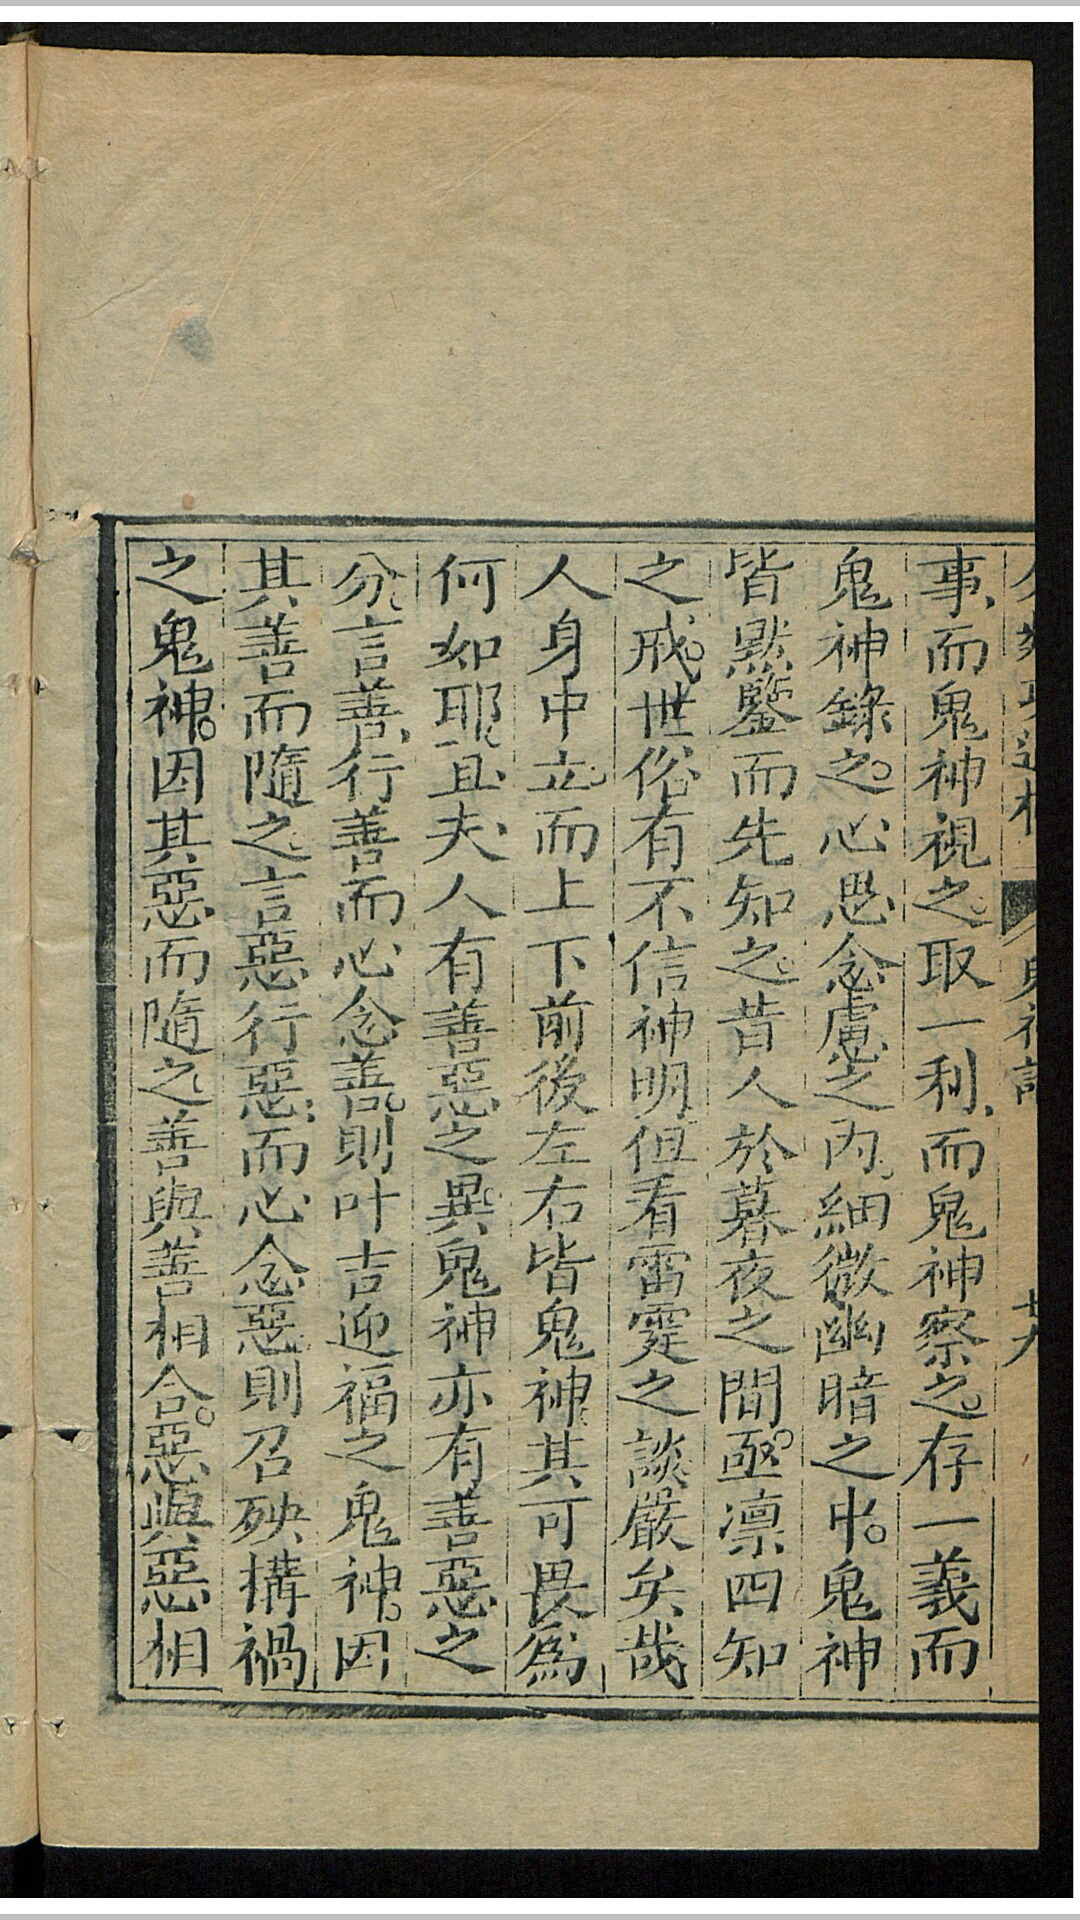 事而鬼神視之取一利而鬼神察之存一義而
鬼神錄之。心思念慮之內細微幽暗之中。鬼神
皆默鑒而先知之昔人於暮夜之間。亟凛四知
之戒。世俗有不信神明但看雷霆之談嚴矣哉
人身中立。而上下前後左右皆鬼神其可畏為
何如耶且夫人有善惡之異鬼神亦有善惡之
分言善行善而心念善。則叶吉迎福之鬼神。因
其善而隨之言惡行惡而心念惡則召殃搆禍
之鬼神。因其惡而隨之善與善相合。惡與惡相